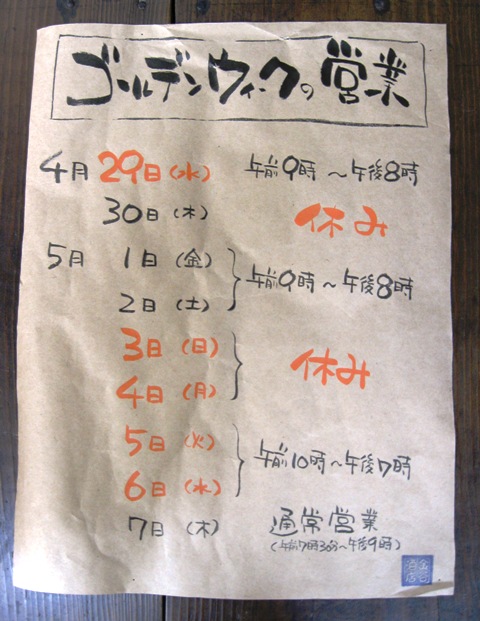 ゴールデンウィークの営業
4月 29日(水) 午前9時 ～午後8時
30日(木) 休み
5月 1日(金)
2日(土)
午前9時 ～ 午後8時
3日(日)
4日(月)
休み
5日(火)
6日(水)
午前10時～午後7時
7日(木) 通常営業
(午前7時30分～午後9時)